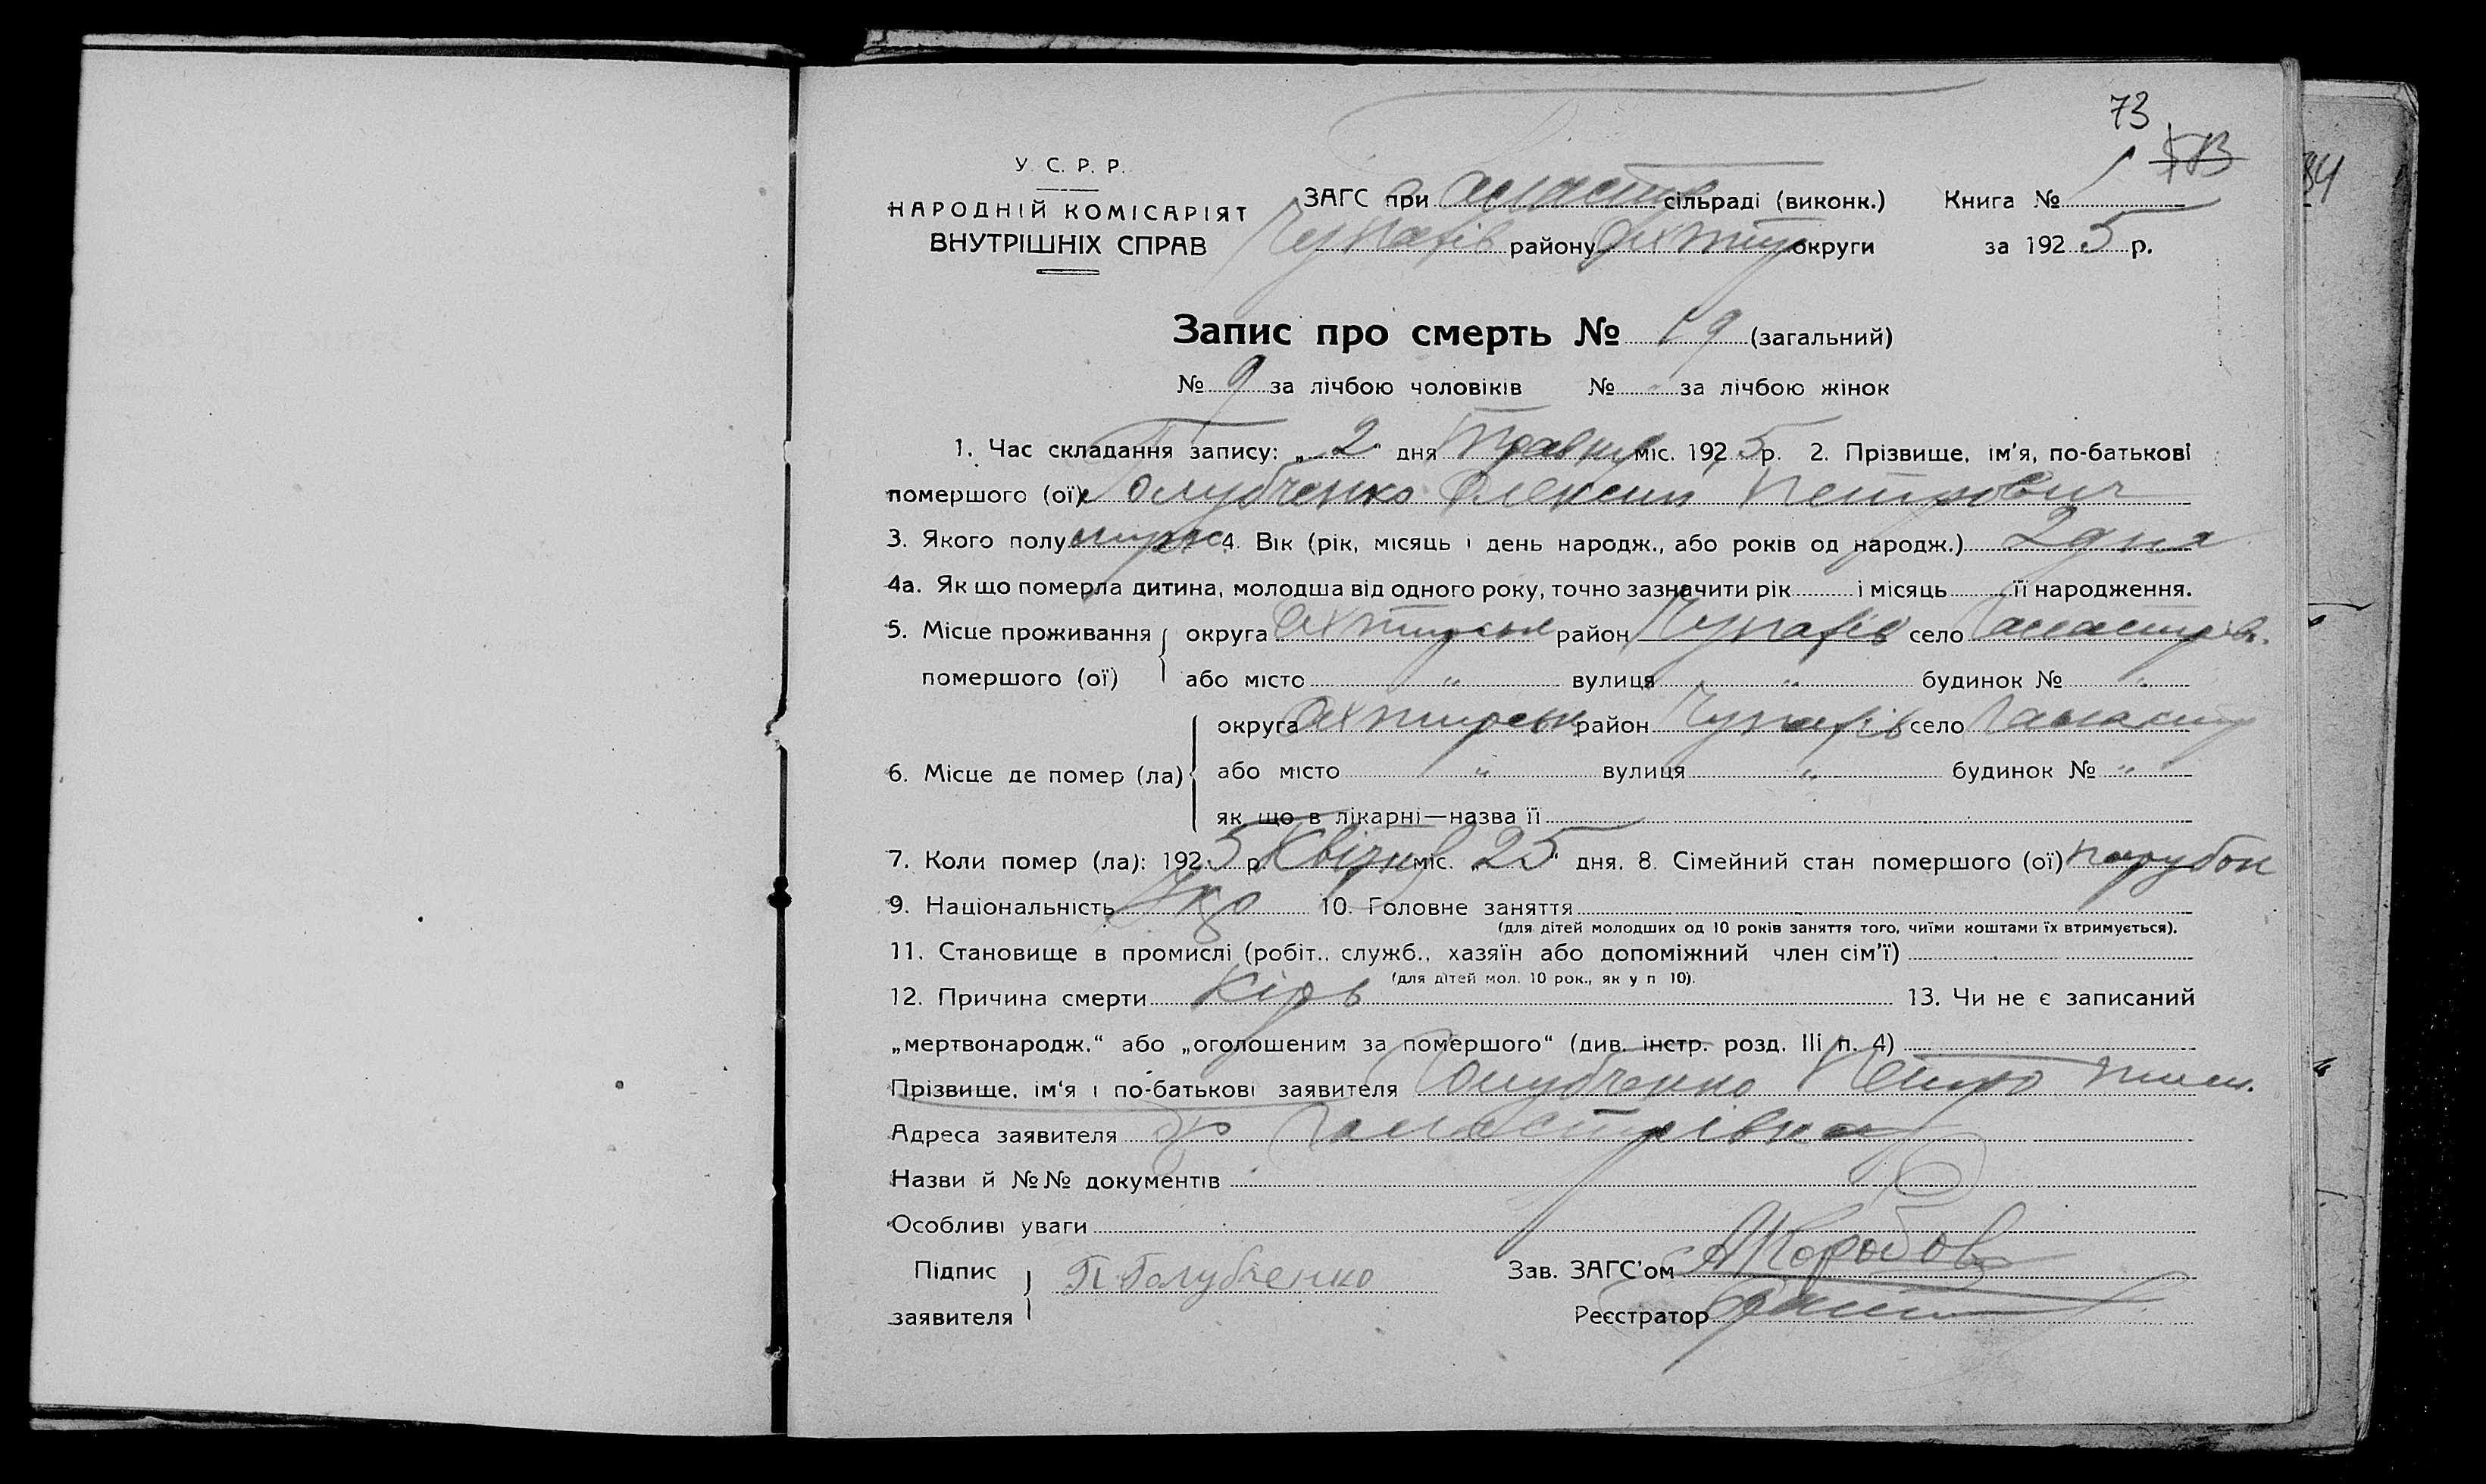 73
513
84
У. С. Р. Р.
НАРОДНІЙ КОМІСАРІЯТ
ВНУТРІШНІХ СПРАВ
ЗАГС при сільраді (виконк.)
Чупахів району Охтир округи
Книга № 1
за 192 5 р.
Запис про смерть № 19 (загальний)
№ 9 за лічбою чоловіків № за лічбою жінок
1. Час складання запису: „ 2 " дня Травня міс. 192 5 р. 2. Прізвище, ім'я, по-батькові
помершого (ої) Голубченко Олексій Петрович
3. Якого полу 4. Вік (рік, місяць і день народж., або років од народж.) 2 дня
4а. Як що померла дитина, молодша від одного року, точно зазначити рік і місяць її народження.
5. Місце проживання помершого (ої) округа Охтирськ район Чупахів село
або місто " вулиця " будинок № "
6. Місце де помер (ла) округа Охтирськ район Чупахів село
або місто " вулиця " будинок № "
як що в лікарні—назва її
7. Коли помер (ла): 192 5 р. Квітня міс. „ 25 " дня. 8. Сімейний стан помершого (ої) парубок
9. Національність Укр 10. Головне заняття
(для дітей молодших од 10 років заняття того, чиїми коштами їх втримується).
11. Становище в промислі (робіт., служб., хазяїн або допоміжний член сім'ї)
(для дітей мол. 10 рок., як у п 10).
12. Причина смерти Кір 13. Чи не є записаний
„мертвонародж." або „оголошеним за помершого" (див. інстр. розд. III п. 4)
Прізвище, ім'я і по-батькові заявителя Голубченко Петро
Адреса заявителя
Назви й №№ документів
Особливі уваги
Підпис заявителя П Голубченко
Зав. ЗАГС'ом Коробов
Реєстратор